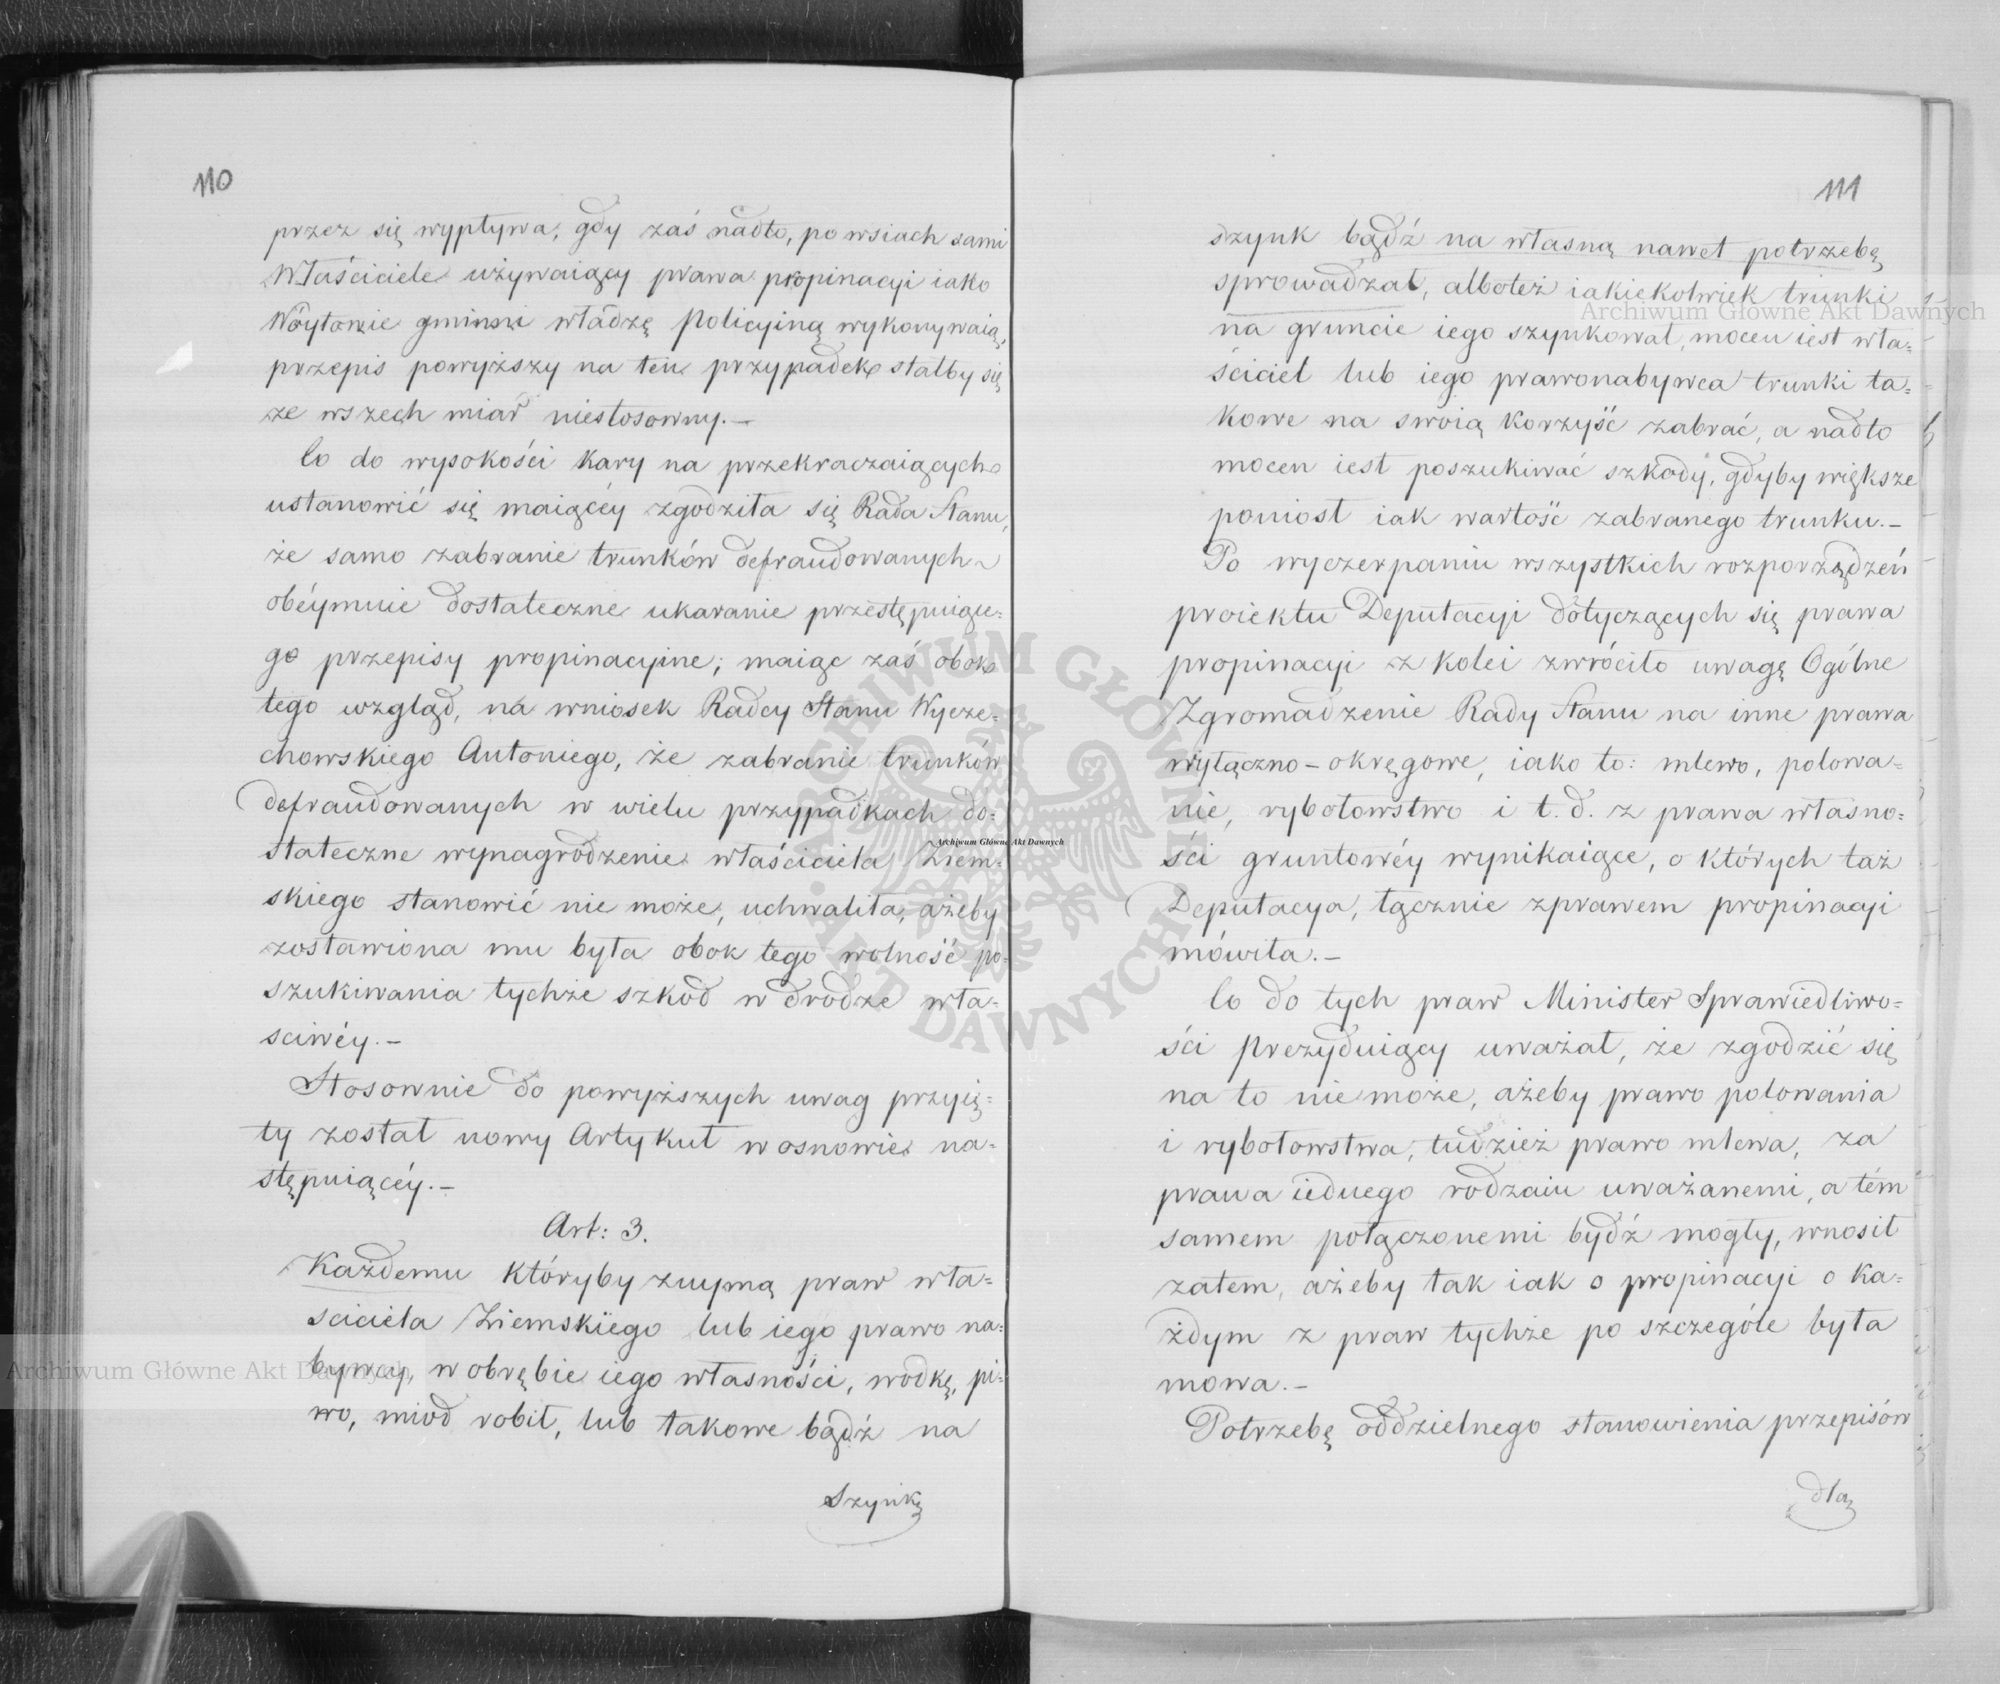 110
przez się wypływa, gdy zaś nadto, po wsiach sami
Właściciele używaiący prawa propinacyi iako
Wóytowie gminni władzę policyiną wykonywaią,
przepis powyższy na ten przypadek stałby się
ze wszech miar niestosowny.—
Co do wysokości kary na przekraczaiących
ustanowić się maiącéy zgodziła się Rada Stanu,
że samo zabranie trunków defraudowanych
obéymuie dostateczne ukaranie przestępuiące=
go przepisy propinacyine; maiąc zaś obok
tego wzgląd, na wniosek Radcy Stanu Wycze=
chowskiego Antoniego, że zabranie trunków
defraudowanych w wielu przypadkach do=
stateczne wynagrodzenie właściciela Ziem=
skiego stanowić nie może, uchwaliła, ażeby
zostawiona mu była obok tego wolność po=
szukiwania tychże szkod w drodze wła=
sciwéy.—
Stosownie do powyższych uwag przyię=
ty został nowy Artykuł w osnowie na=
stępuiącéy.—
Art: 3.
Każdemu któryby z uymą praw wła=
sciciela Ziemskiego lub iego prawo na=
bywcy, w obrębie iego własności, wodkę, pi=
wo, miod robił, lub takowe bądź na
Szynk
111
szynk bądź na własną nawet potrzebę
sprowadzał, alboteż iakiekolwiek trunki
na gruncie iego szynkował, mocen iest wła=
ściciel lub iego prawonabywca trunki ta=
kowe na swoią korzyść zabrać, a nadto
mocen iest poszukiwać szkody, gdyby większe
poniosł iak wartość zabranego trunku.—
Po wyczerpaniu wszystkich rozporządzeń
proiektu Deputacyi dotyczących się prawa
propinacyi z kolei zwróciło uwagę Ogólne
Zgromadzenie Rady Stanu na inne prawa
wyłączno-okręgowe, iako to: mlewo, polowa=
nie, rybołowstwo i t. d. z prawa własno=
ści gruntowéy wynikaiące, o których taż
Deputacya, łącznie z prawem propinacyi
mówiła.—
Co do tych praw Minister Sprawiedliwo=
ści prezyduiący uważał, że zgodzić się
na to nie może, ażeby prawo polowania
i rybołowstwa, tudzież prawo mlewa, za
prawa iednego rodzaiu uważanemi, a tém
samem połączonemi bydź mogły, wnosił
zatem, ażeby tak iak o propinacyi o ka=
żdym z praw tychże po szczególe była
mowa.—
Potrzebę oddzielnego stanowienia przepisów
dla
Archiwum Główne Akt Dawnych
Archiwum Główne Akt Dawnych
Archiwum Główne Akt Dawnych
ARCHIWUM GŁÓWNE AKT DAWNYCH